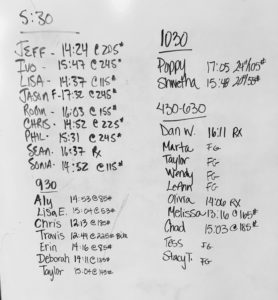 5:30
JEFF - 14:24 @ 205#
IVO - 15:47 @ 245#
LISA - 14:37 @ 115#
JASON F - 17:32 @ 245#
ROBIN - 16:03 @ 155#
CHRIS - 14:52 @ 225#
PHIL - 15:31 @ 245#
SEAN - 16:37 Rx
SONIA - 14:52 @ 115#
930
Aly 14:53 @ 85#
Lisa E. 15:04 @ 63#
Chris 12:13 @ 185#
Travis 12:49 @ 225#
Erin 14:16 @ 85#
Deborah 14:11 @ 135#
Taylor 15:04 @ 145#
1030
Poppy 17:05
Shwetha 15:48
430-630
Dan W. 16:11 Rx
Marta FG
Taylor FG
Wendy FG
LeAnn FG
Olivia 14:06 Rx
Melissa 13:16 @ 165#
Chad 15:03 @ 185#
Tess FG
Stacy T. FG